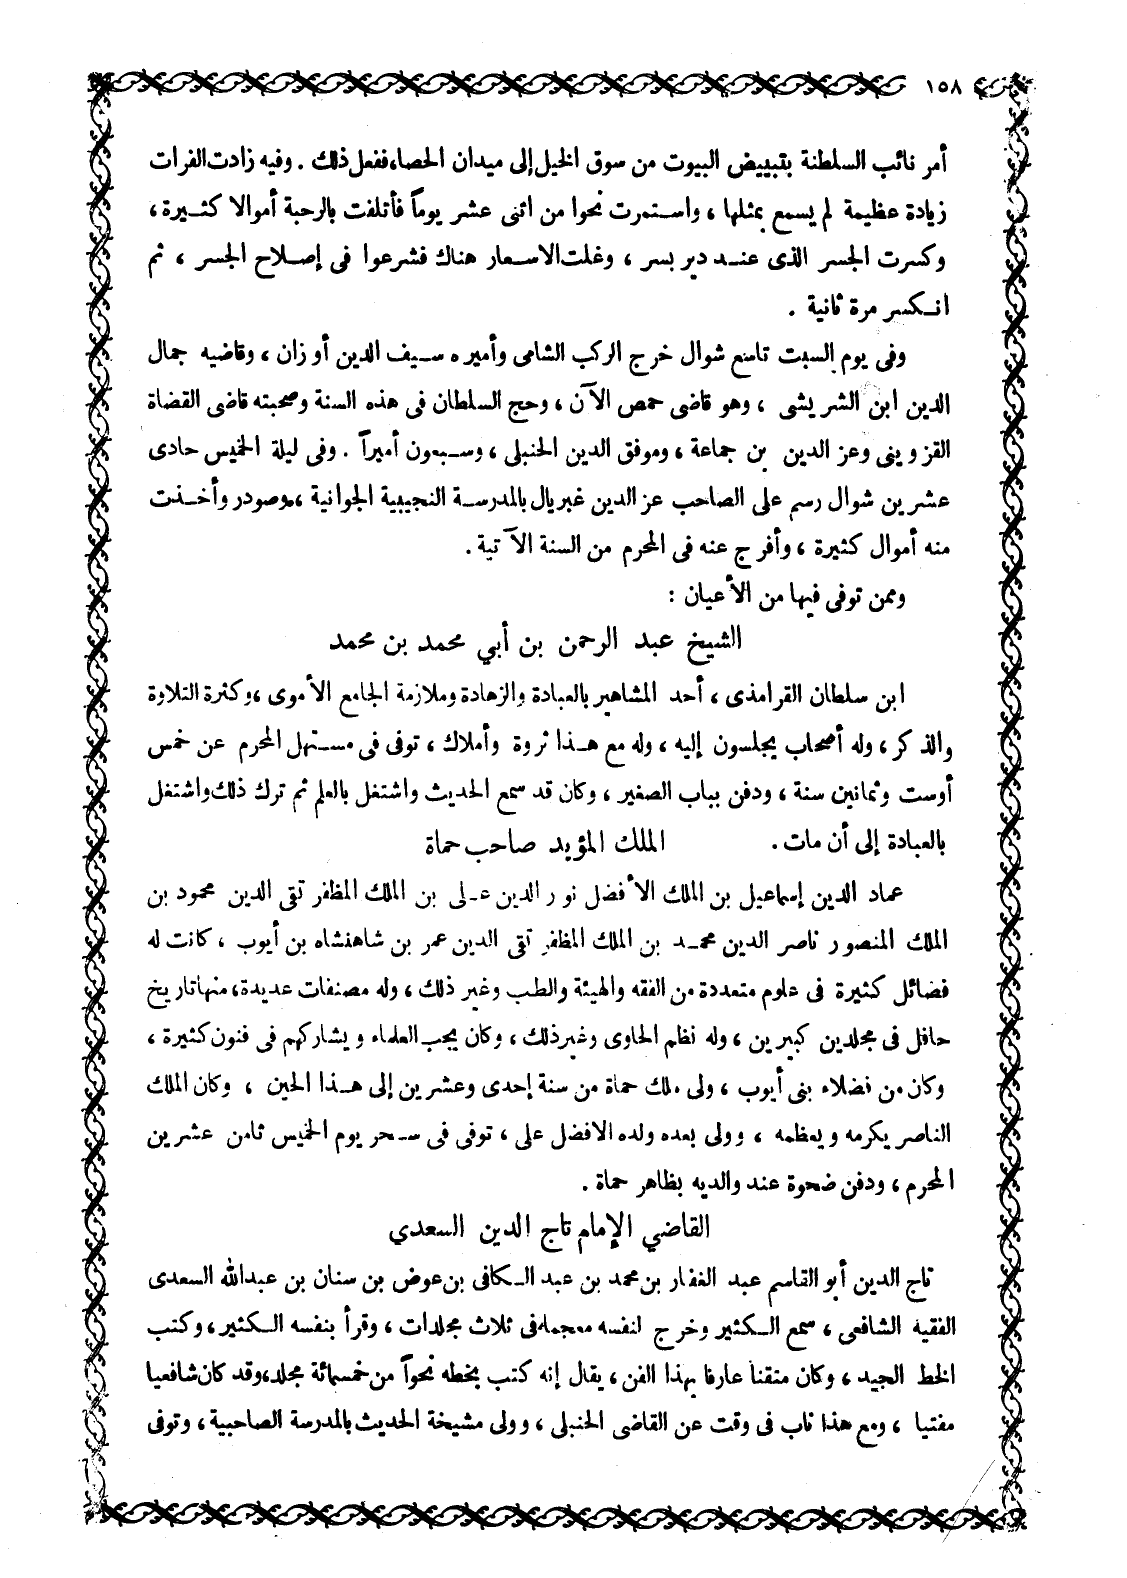 ١٥٨
أمر نائب السلطنة بتبييض البيوت من سوق الخيل إلى ميدان الحصا، ففعل ذلك . وفيه زادت الفرات
زيادة عظيمة لم يسمع بمثلها ، واستمرت نحوا من اثنى عشر يوماً فأتلفت بالرحبة أموالا كثيرة ،
وكسرت الجسر الذى عند دير بسر ، وغلت الاسعار هناك فشرعوا فى إصلاح الجسر ، ثم
انكسر مرة ثانية .
وفى يوم السبت تاسع شوال خرج الركب الشامى وأميره سيف الدين أوزان ، وقاضيه جمال
الدين ابن الشريشى ، وهو قاضى حمص الآن ، وحج السلطان فى هذه السنة وصحبته قاضى القضاة
القزوينى وعز الدين بن جماعة ، وموفق الدين الحنبلى ، وسبعون أميراً . وفى ليلة الخميس حادى
عشرين شوال رسم على الصاحب عز الدين غبريال بالمدرسة النجيبية الجوانية ، وصودر وأخذت
منه أموال كثيرة ، وأفرج عنه فى المحرم من السنة الآتية .
وممن توفى فيها من الأعيان :
الشيخ عبد الرحمن بن أبي محمد بن محمد
ابن سلطان القرامذى ، أحد المشاهير بالعبادة والزهادة وملازمة الجامع الأموى ، وكثرة التلاوة
والذكر ، وله أصحاب يجلسون إليه ، وله مع هذا ثروة وأملاك ، توفى فى مستهل المحرم عن خمس
أوست وثمانين سنة ، ودفن بباب الصغير ، وكان قد سمع الحديث واشتغل بالعلم ثم ترك ذلك واشتغل
بالعبادة إلى أن مات . الملك المؤيد صاحب حماة
عماد الدين إسماعيل بن الملك الأفضل نور الدين على بن الملك المظفر تقى الدين محمود بن
الملك المنصور ناصر الدين محمد بن الملك المظفر تقى الدين عمر بن شاهنشاه بن أيوب ، كانت له
فضائل كثيرة فى علوم متعددة من الفقه والهيئة والطب وغير ذلك ، وله مصنفات عديدة ، منها تاريخ
حافل فى مجلدين كبيرين ، وله نظم الحاوى وغير ذلك ، وكان يحب العلماء ويشاركهم فى فنون كثيرة ،
وكان من فضلاء بنى أيوب ، ولى ملك حماة من سنة إحدى وعشرين إلى هذا الحين ، وكان الملك
الناصر يكرمه ويعظمه ، وولى بعده ولده الافضل على ، توفى فى سحر يوم الخميس ثامن عشرين
المحرم ، ودفن ضحوة عند والديه بظاهر حماة .
القاضي الإمام تاج الدين السعدي
تاج الدين أبو القاسم عبد الغفار بن محمد بن عبد الكافى بن عوض بن سنان بن عبدالله السعدى
الفقيه الشافعى ، سمع الكثير وخرج لنفسه معجما فى ثلاث مجلدات ، وقرأ بنفسه الكثير ، وكتب
الخط الجيد ، وكان متقنا عارفا بهذا الفن ، يقال إنه كتب بخطه نحواً من خمسمائة مجلد، وقد كان شافعيا
مفتيا ، ومع هذا ناب فى وقت عن القاضى الحنبلى ، وولى مشيخة الحديث بالمدرسة الصاحبية ، وتوفى